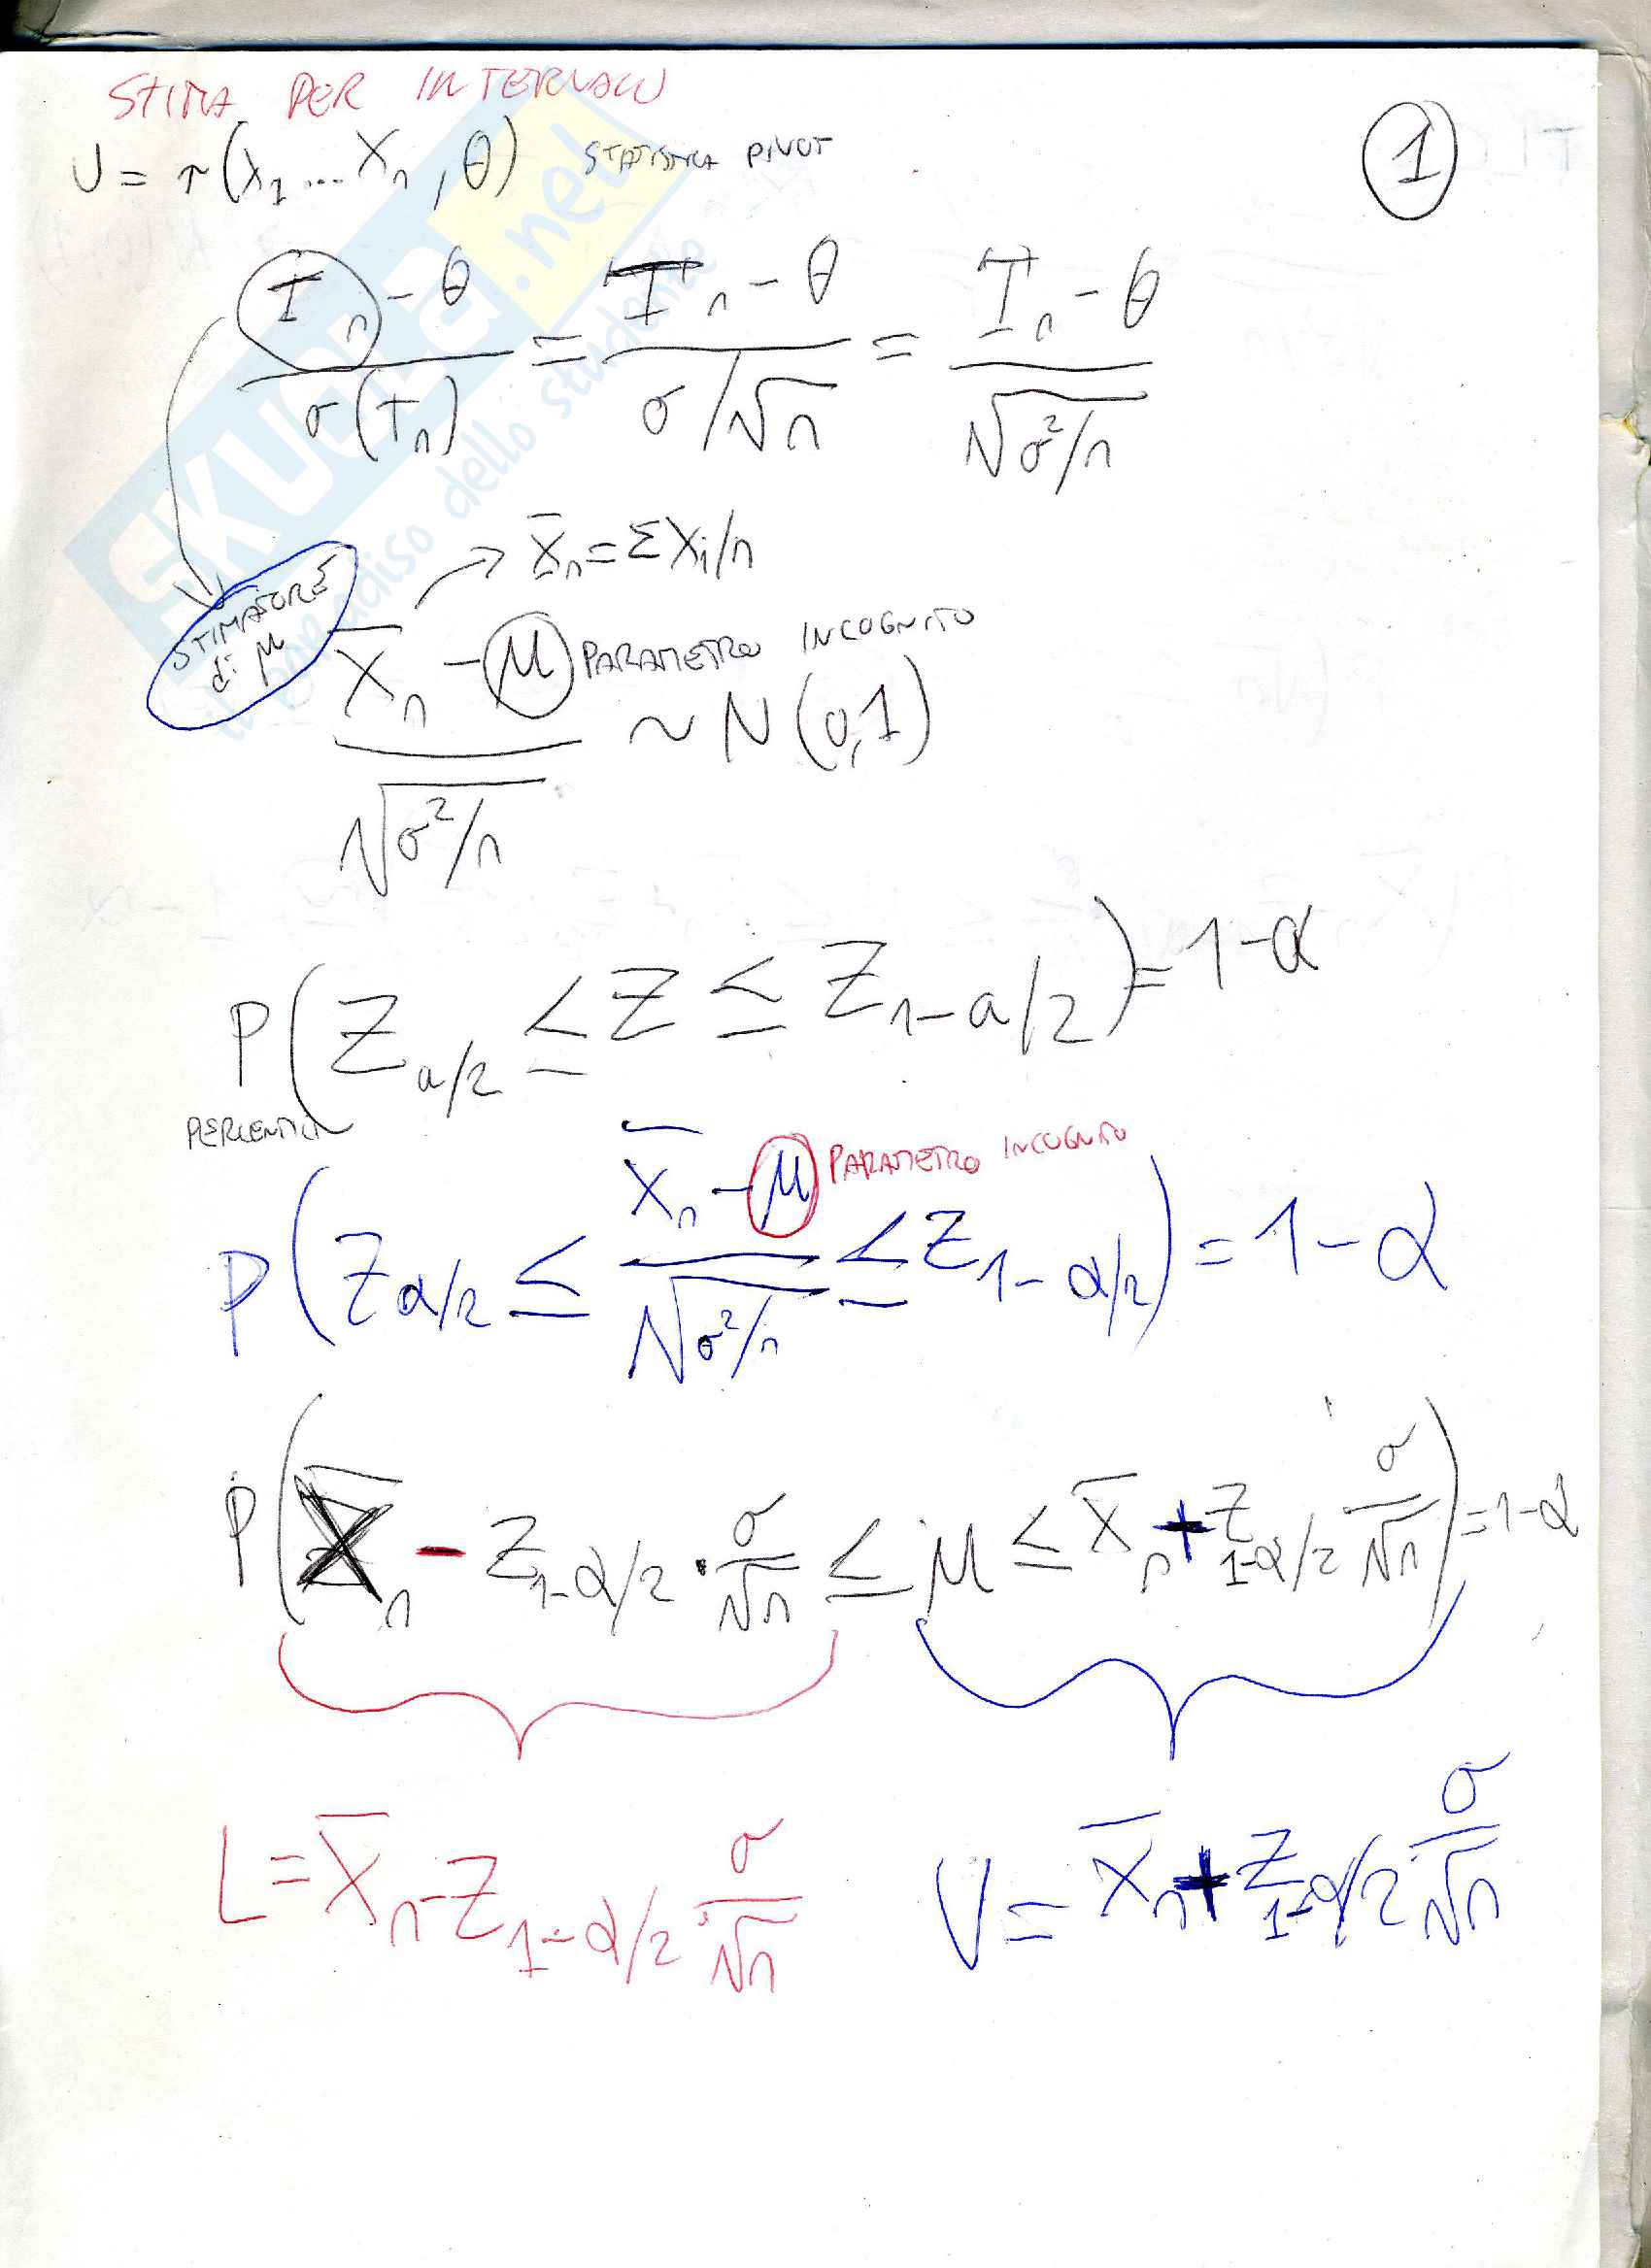 STIMA PER INTERVALLI
U = τ(X₁ ... Xₙ, θ) STATISTICA PIVOT
①
(Tₙ - θ) / σ(Tₙ) = (Tₙ - θ) / (σ/√n) = (Tₙ - θ) / √(σ²/n)
X̄ₙ = ΣXᵢ/n
STIMATORE
di μ
(X̄ₙ - μ) / √(σ²/n) ~ N(0,1)
PARAMETRO INCOGNITO
P(Z_{a/2} ≤ Z ≤ Z_{1-a/2}) = 1-α
PERCENTILI
PARAMETRO INCOGNITO
P(Z_{α/2} ≤ (X̄ₙ - μ) / √(σ²/n) ≤ Z_{1-α/2}) = 1-α
P(X̄ₙ - Z_{1-α/2} · σ/√n ≤ μ ≤ X̄ₙ + Z_{1-α/2} σ/√n) = 1-α
L = X̄ₙ - Z_{1-α/2} · σ/√n
V = X̄ₙ + Z_{1-α/2} σ/√n
SKUOLA.net
il paradiso dello studente